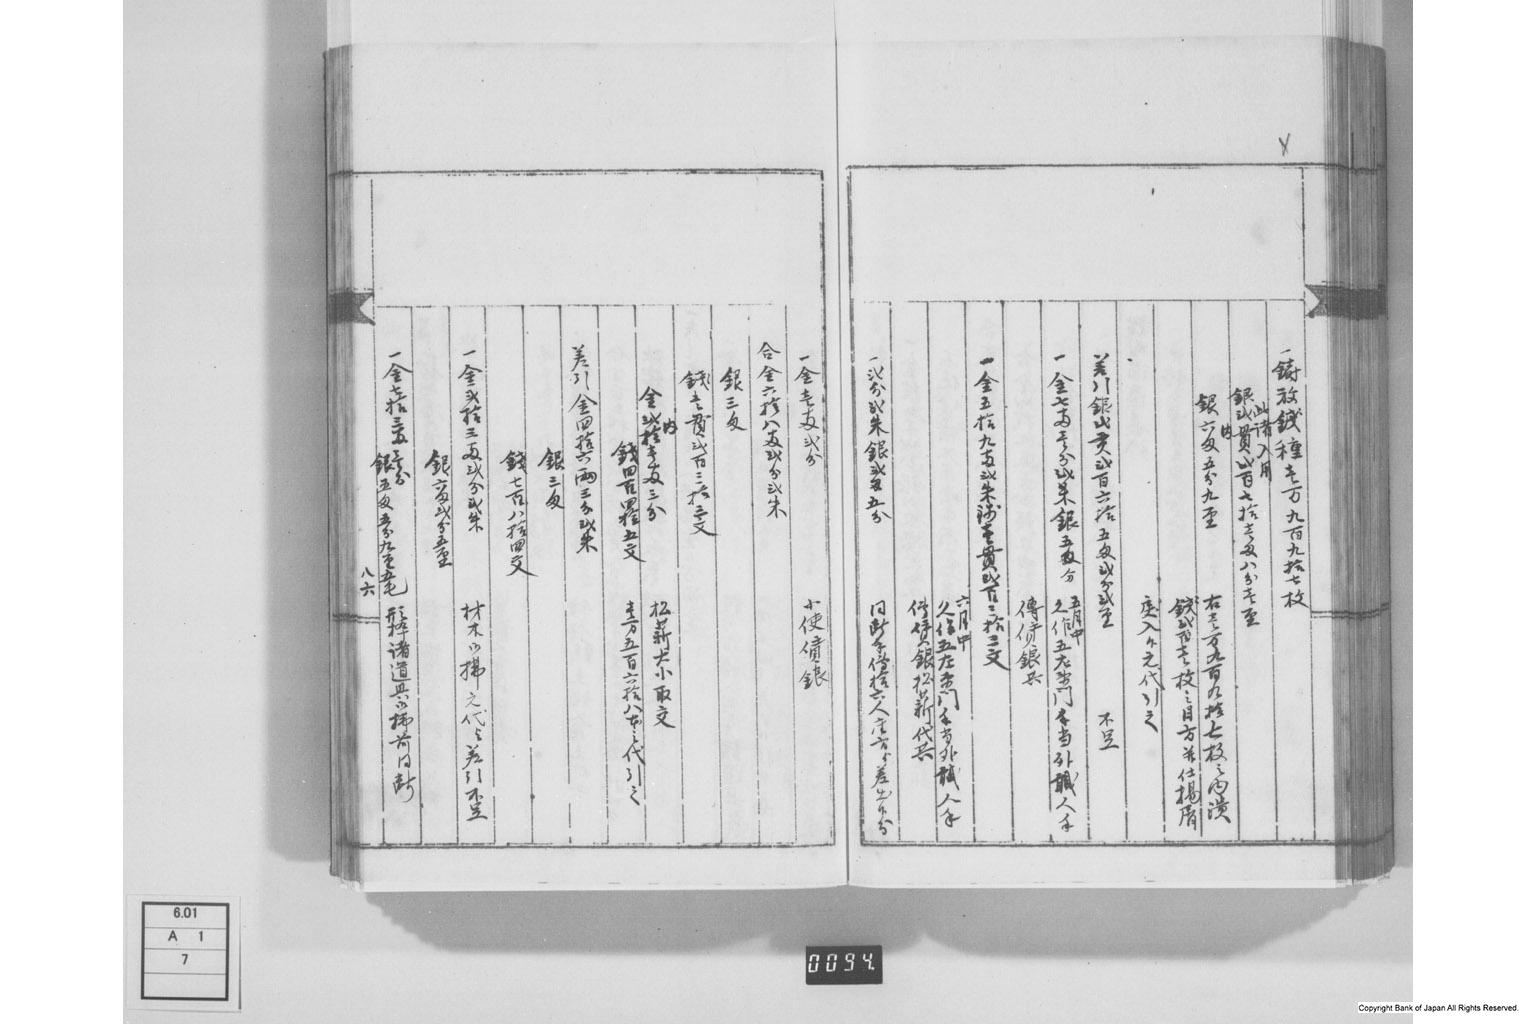 一 鋳放銭種壱万九百九拾七枚
此諸入用
銀弐貫弐百七拾壱匁八分壱厘
内
銀六匁五分九厘
右壱万九百九拾七枚之内潰
銭弐百壱枚之目方并仕揚屑
戻入ケ元代引之
差引銀弐貫弐百六拾五匁弐分弐厘
不足
一 金七両壱分弐朱銀五匁分
五月中
久作五左衛門手当外職人手
傳賃銀共
一 金五拾九両弐朱銭壱貫弐百三拾三文
六月中
久作五左衛門手当外職人手
傳賃銀松薪代共
一 弐分弐朱銀弐匁五分
日断手傳拾六人座方差出分
一 金壱両弐分
小使賃銀
合金六拾八両弐分弐朱
銀三匁
銭壱貫弐百三拾三文
内
金弐拾壱両三分
銭四百四拾五文
松薪大小取交
壱万五百六拾八本之代引之
差引金四拾六両三分弐朱
銀三匁
銭七百八拾四文
一 金弐拾三両弐分弐朱
銀六匁弐分五厘
材木御拂元代之差引不足
一 金七拾三両壱分
銀五匁五分九厘五毛
形粹諸道具御拂前日断
八六
6.01
A 1
7
0094
Copyright Bank of Japan All Rights Reserved.